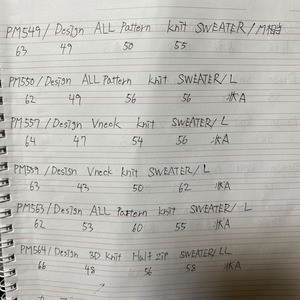 PM549/Design ALL Pattern knit SWEATER/M相当
63 49 50 55
PM550/Design ALL Pattern knit SWEATER/L
62 49 56 56 米A
PM557/Design Vneck knit SWEATER/L
64 47 54 56 米A
PM559/Design Vneck knit SWEATER/L
63 43 50 62 米A
PM563/Design ALL Pattern knit SWEATER/L
62 53 60 55 米A
PM564/Design 3D knit Half zip SWEATER/LL
66 48 56 58 米A